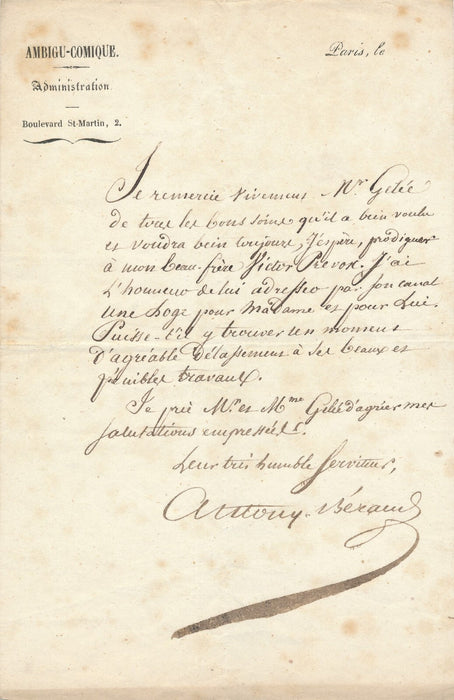 AMBIGU-COMIQUE.
Paris, le
Administration
Boulevard St-Martin, 2.
Je remercie vivement Mr. Gelée
de tous les bons soins qu'il a bien voulu
et voudra bein toujours, j'espère, prodiguer
à mon beau-frère Victor Prevost. J'ai
l'honneur de lui adresser par son canal
une Loge pour Madame et pour Lui.
Puisse-t-il y trouver un moment
d'agréable délassement à ses beaux et
pénibles travaux.
Je prie Mr. et Mme Gelée d'agréer mes
salutations empressées.
Leur très humble Serviteur,
Antony-Béraud